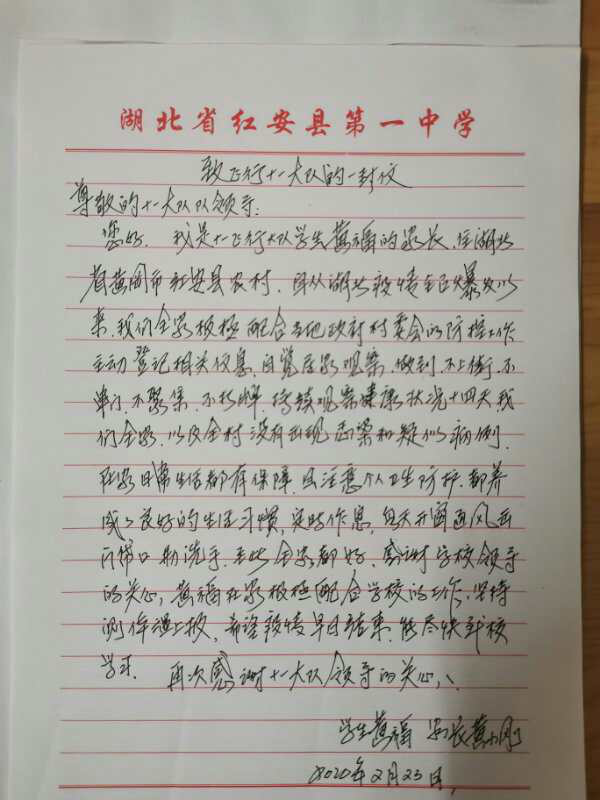 湖北省红安县第一中学
致飞行十一大队的一封信
尊敬的十一大队队领导:
您好. 我是十一飞行大队学生黄福的家长, 住湖北
省黄冈市红安县农村. 自从湖北疫情全面爆发以
来, 我们全家极极配合当地政府村委会的防控工作
主动登记相关信息, 自觉居家观察, 做到不上街, 不
串门, 不聚集, 不扎堆, 持续观察健康状况十四天, 我
们全家, 以及全村没有出现感染和疑似病例.
在家日常生活都有保障, 且注意个人卫生防护. 都养
成了良好的生活习惯, 定时作息, 每天开窗通风出
门带口勤洗手. 在此全家都好. 感谢学校领导
的关心, 黄福在家极极配合学校的工作. 坚持
测体温上报, 希望疫情早日结束. 能尽快到校
学习. 再次感谢十一大队领导的关心、
学生黄福 家长黄小刚
2020年2月23日,